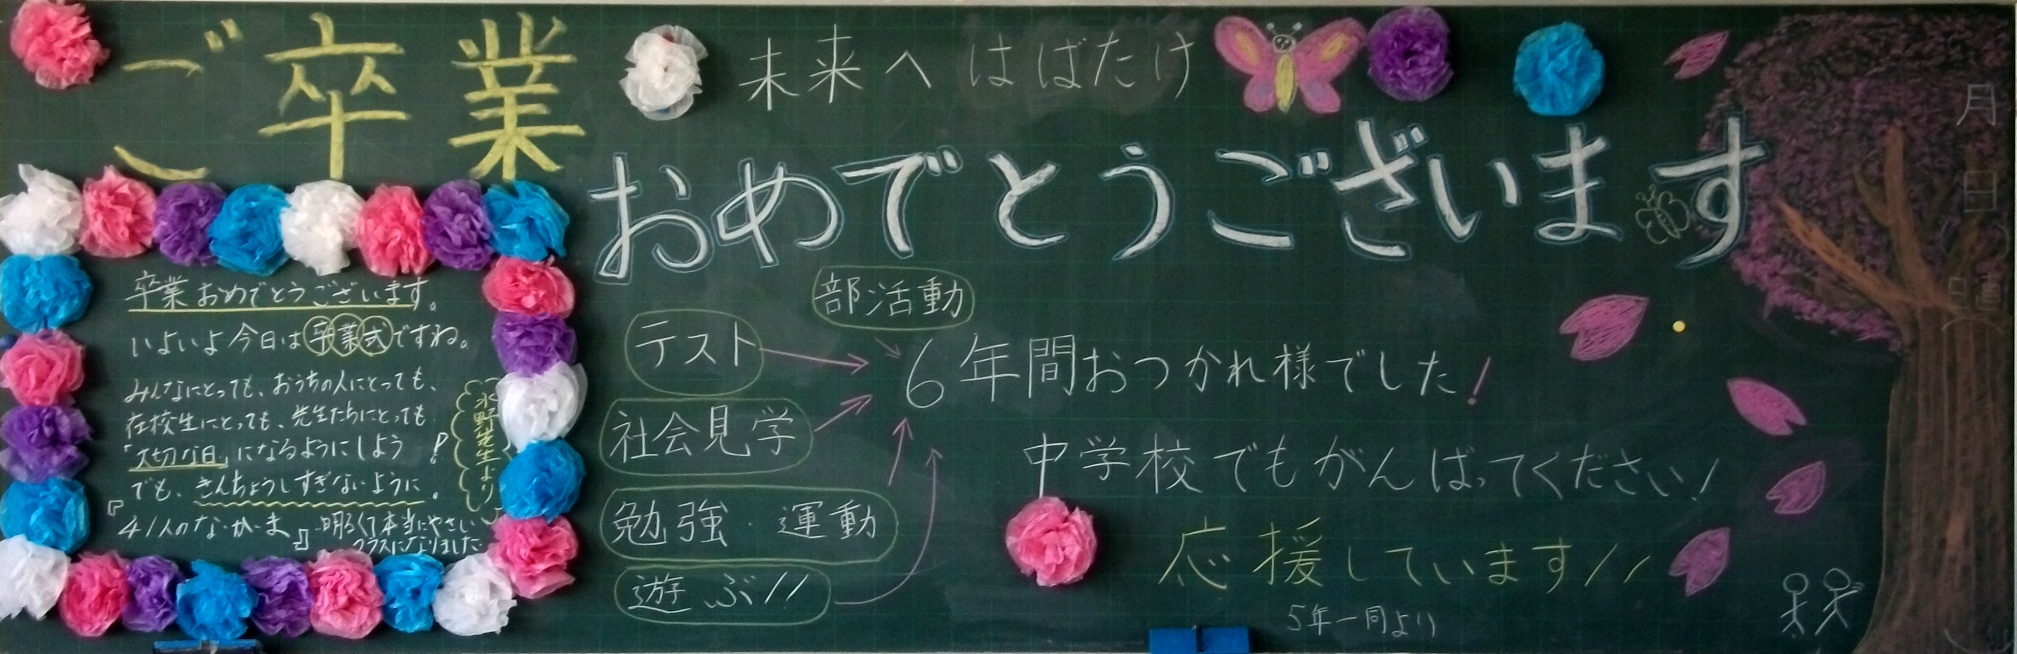 ご卒業
未来へはばたけ
おめでとうございます
卒業おめでとうございます。
いよいよ今日は卒業式ですね。
みんなにとっても、おうちの人にとっても、
在校生にとっても、先生たちにとっても
「大切な日」になるようにしよう!
でも、きんちょうしすぎないように。
『41人のなかま』明るくて本当にやさしい
クラスになりました
水野先生より
部活動
テスト
社会見学
勉強・運動
遊ぶ!!
6年間おつかれ様でした!
中学校でもがんばってください!
応援しています!!
5年一同より
月
日
曜